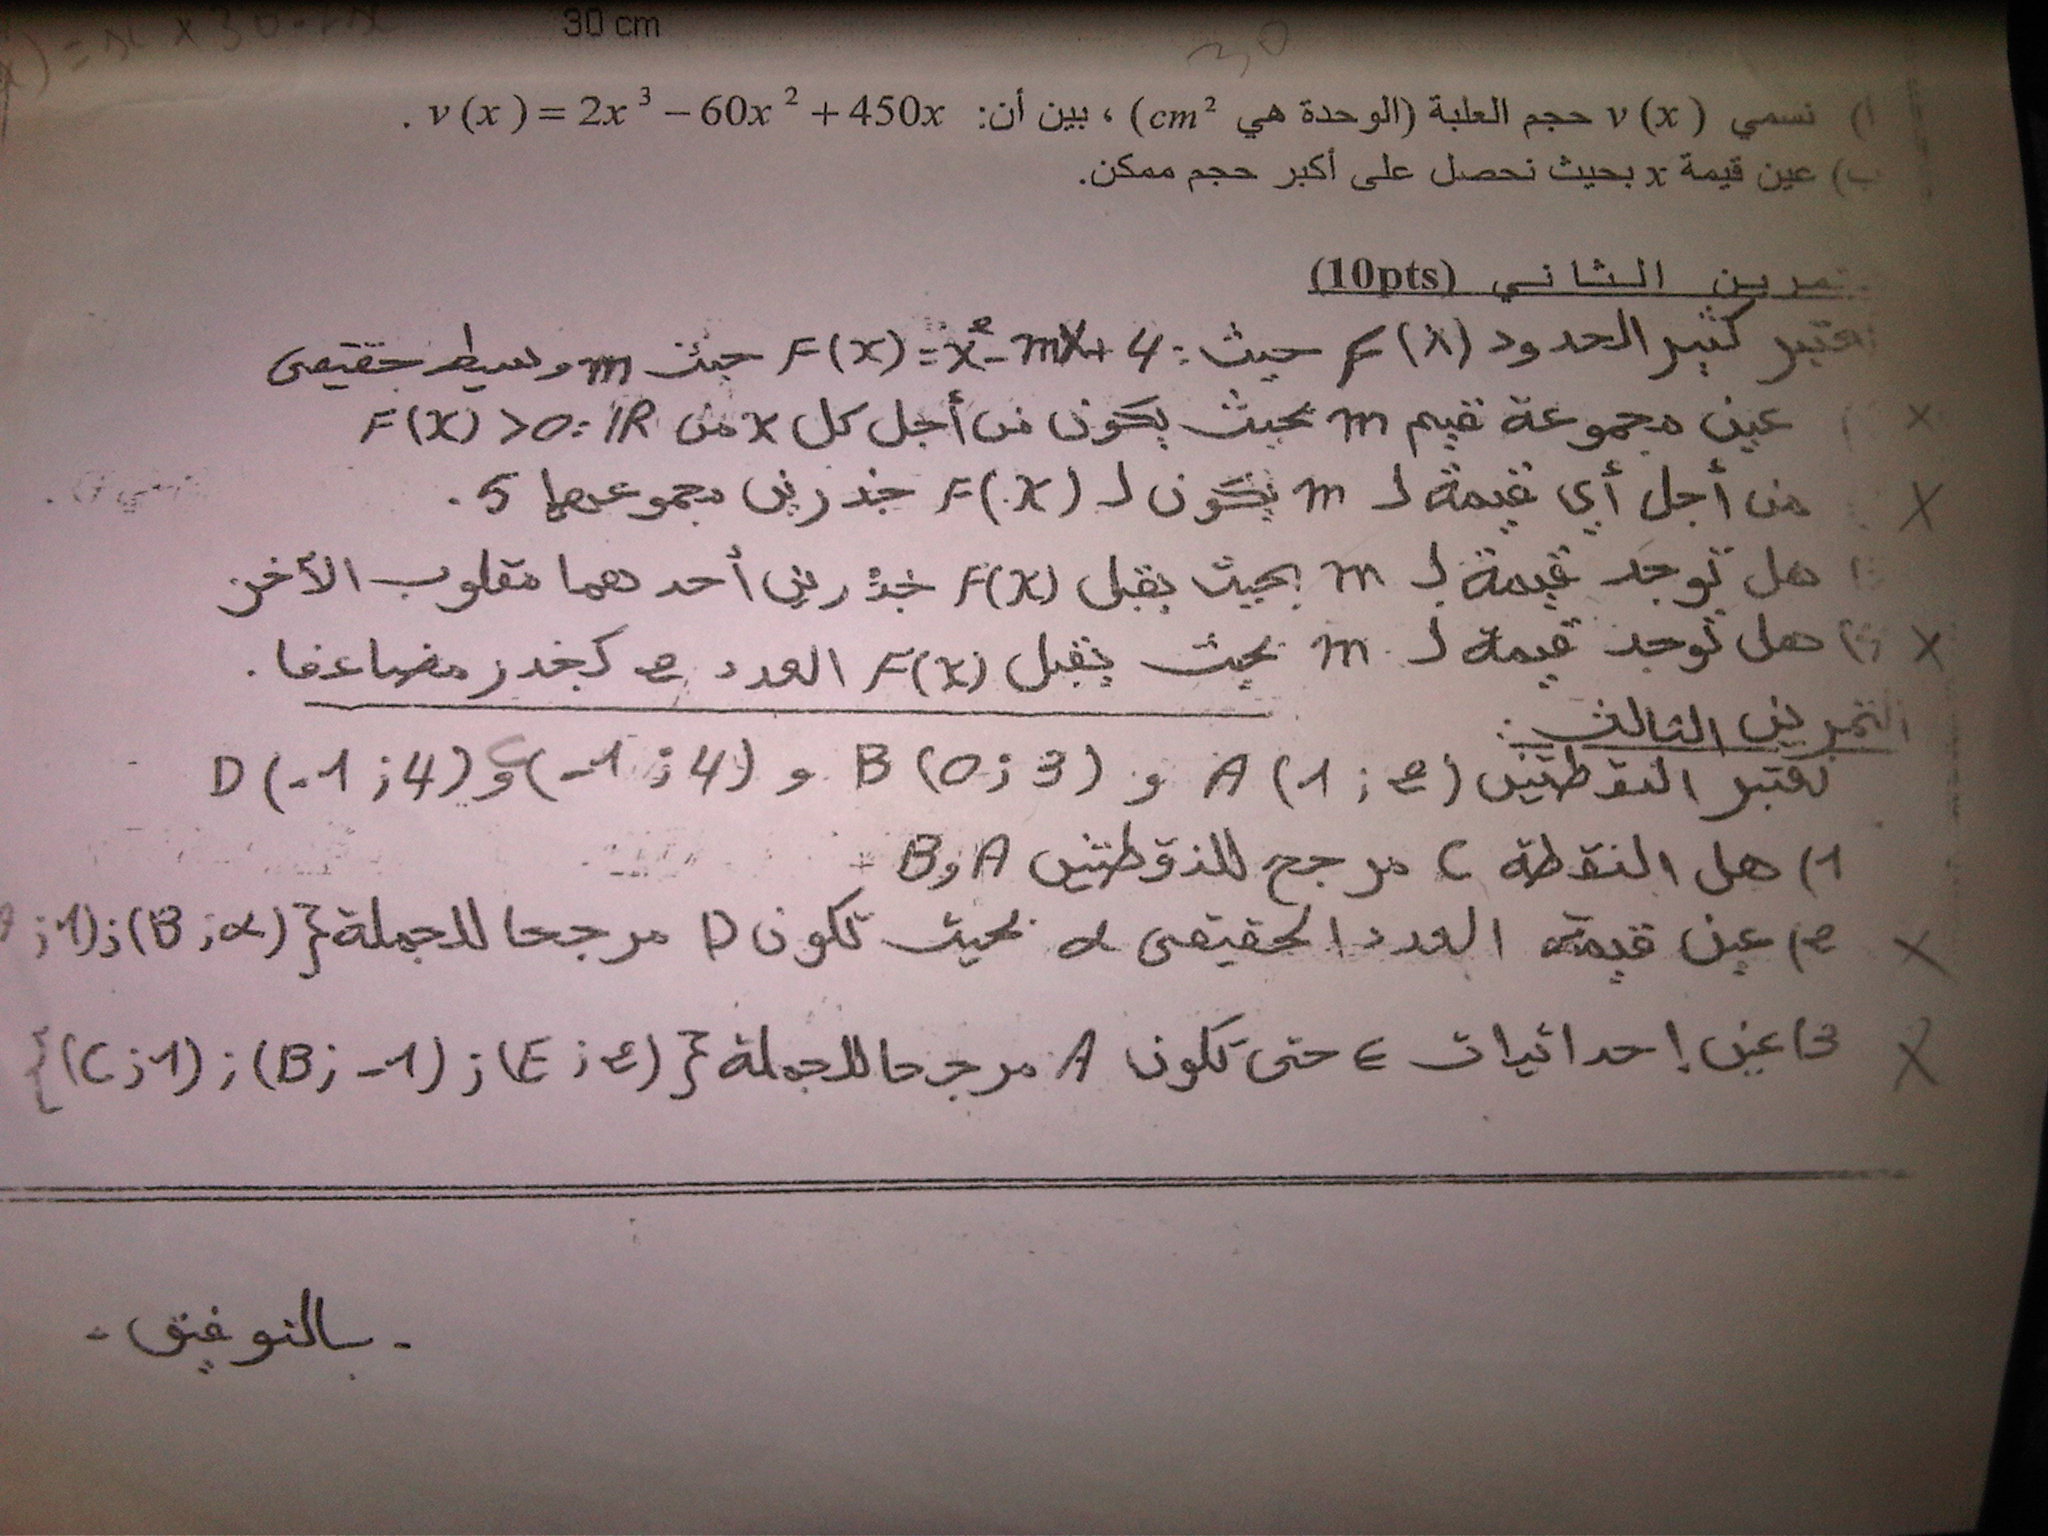 30 cm
أ) نسمي v(x) حجم العلبة (الوحدة هي cm²) ، بين أن: v(x) = 2x³ − 60x² + 450x .
ب) عين قيمة x بحيث نحصل على أكبر حجم ممكن.
تمرين الثاني (10pts)
نعتبر كثير الحدود F(x) حيث : F(x) = x² - mx + 4 حيث m وسيط حقيقي
عين مجموعة قيم m بحيث يكون من أجل كل x من IR : F(x) > 0
من أجل أي قيمة لـ m يكون لـ F(x) جذرين مجموعهما 5 .
هل توجد قيمة لـ m بحيث يقبل F(x) جذرين أحدهما مقلوب الآخر
هل توجد قيمة لـ m بحيث يقبل F(x) العدد 2 كجذر مضاعفا .
التمرين الثالث :
نعتبر النقطتين A(1 ; 2) و B(0 ; 3) و C(-1 ; 4) و D(-1 ; 4)
1) هل النقطة C مرجح للنقطتين A و B
2) عين قيمة العدد الحقيقي α بحيث تكون D مرجحا للجملة { (B ; α) ; ; 1)
3) عين إحداثيات E حتى تكون A مرجحا للجملة { (E ; 2) ; (B ; -1) ; (C ; 1) }
- بالتوفيق -